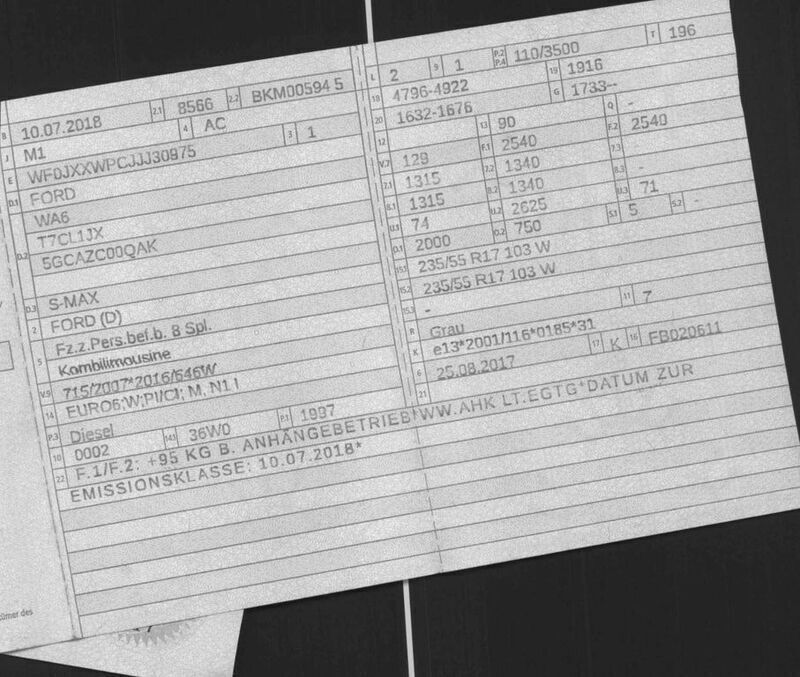 B 10.07.2018 2.1 8566 2.2 BKM00594 5
J M1 4 AC
E WF0JXXWPCJJJ30975 3 1
D.1 FORD
WA6
D.2 T7CL1JX
5GCAZC00QAK
D.3 S-MAX
2 FORD (D)
5 Fz.z.Pers.bef.b. 8 Spl.
Kombilimousine
V.9 715/2007*2016/646W
14 EURO6;W;PI/CI; M, N1 I
P.3 Diesel P.1 1997
10 0002 14.1 36W0
22 F.1/F.2: +95 KG B. ANHÄNGEBETRIEB*WW.AHK LT.EGTG*DATUM ZUR
EMISSIONSKLASSE: 10.07.2018*
L 2 9 1 P.2 P.4 110/3500 T 196
18 4796-4922 19 1916
20 1632-1676 G 1733--
12 13 90 Q -
V.7 129 F.1 2540 F.2 2540
7.1 1315 7.2 1340 7.3
8.1 1315 8.2 1340 8.3 -
U.1 74 U.2 2625 U.3 71
O.1 2000 O.2 750 S.1 5 S.2 -
15.1 235/55 R17 103 W
15.2 235/55 R17 103 W
15.3 -
R Grau 11 7
K e13*2001/116*0185*31
6 25.08.2017 17 K 16
21